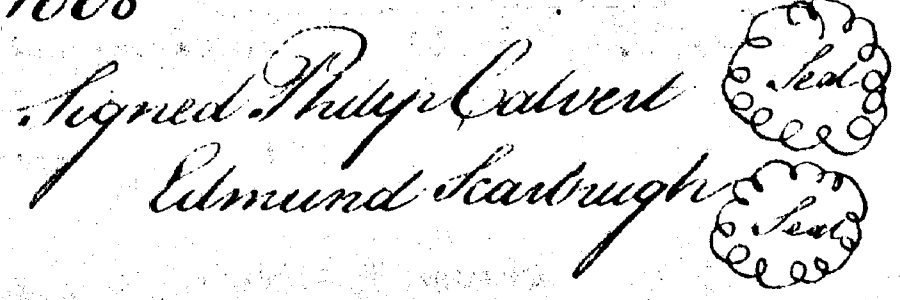 1668
Signed Philip Calvert Seal
Edmund Scarbrugh Seal